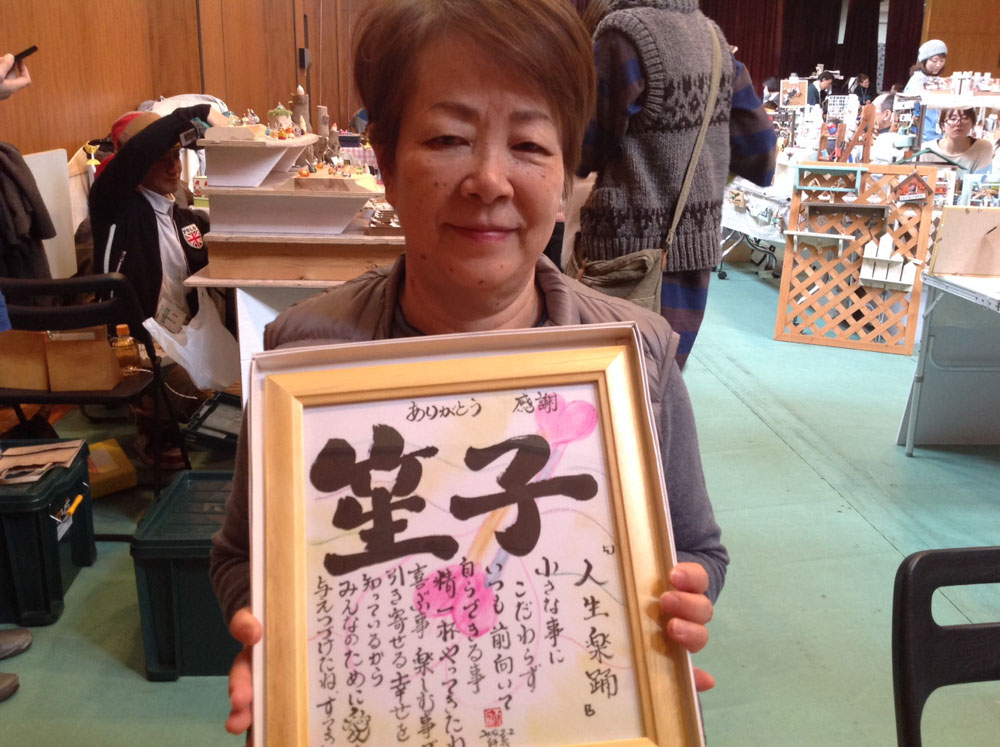 ありがとう 感謝
笙子
『人生楽踊』
小さな事に
こだわらず
いつも前向いて
自らできる事
精一杯やってきたね
喜ぶ事 楽しむ事が
引き寄せる幸せを
知っているから
みんなのために愛
与えつづけたね、ずっと